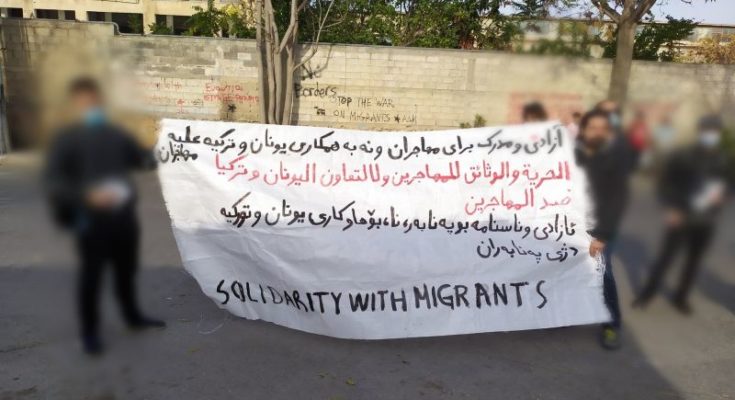 No
Borders
STOP THE WAR
ON MIGRANTS
آزادی و مدرک برای مهاجران و نه به همکاری یونان و ترکیه علیه مهاجران
الحرية والوثائق للمهاجرين ولا للتعاون اليونان وتركيا
ضد المهاجرين
ئازادی و ناسنامه بو پەنابەر، نا، بۆهاوکاری یونان و تورکیه
دژی پەنابەران
SOLIDARITY WITH MIGRANTS